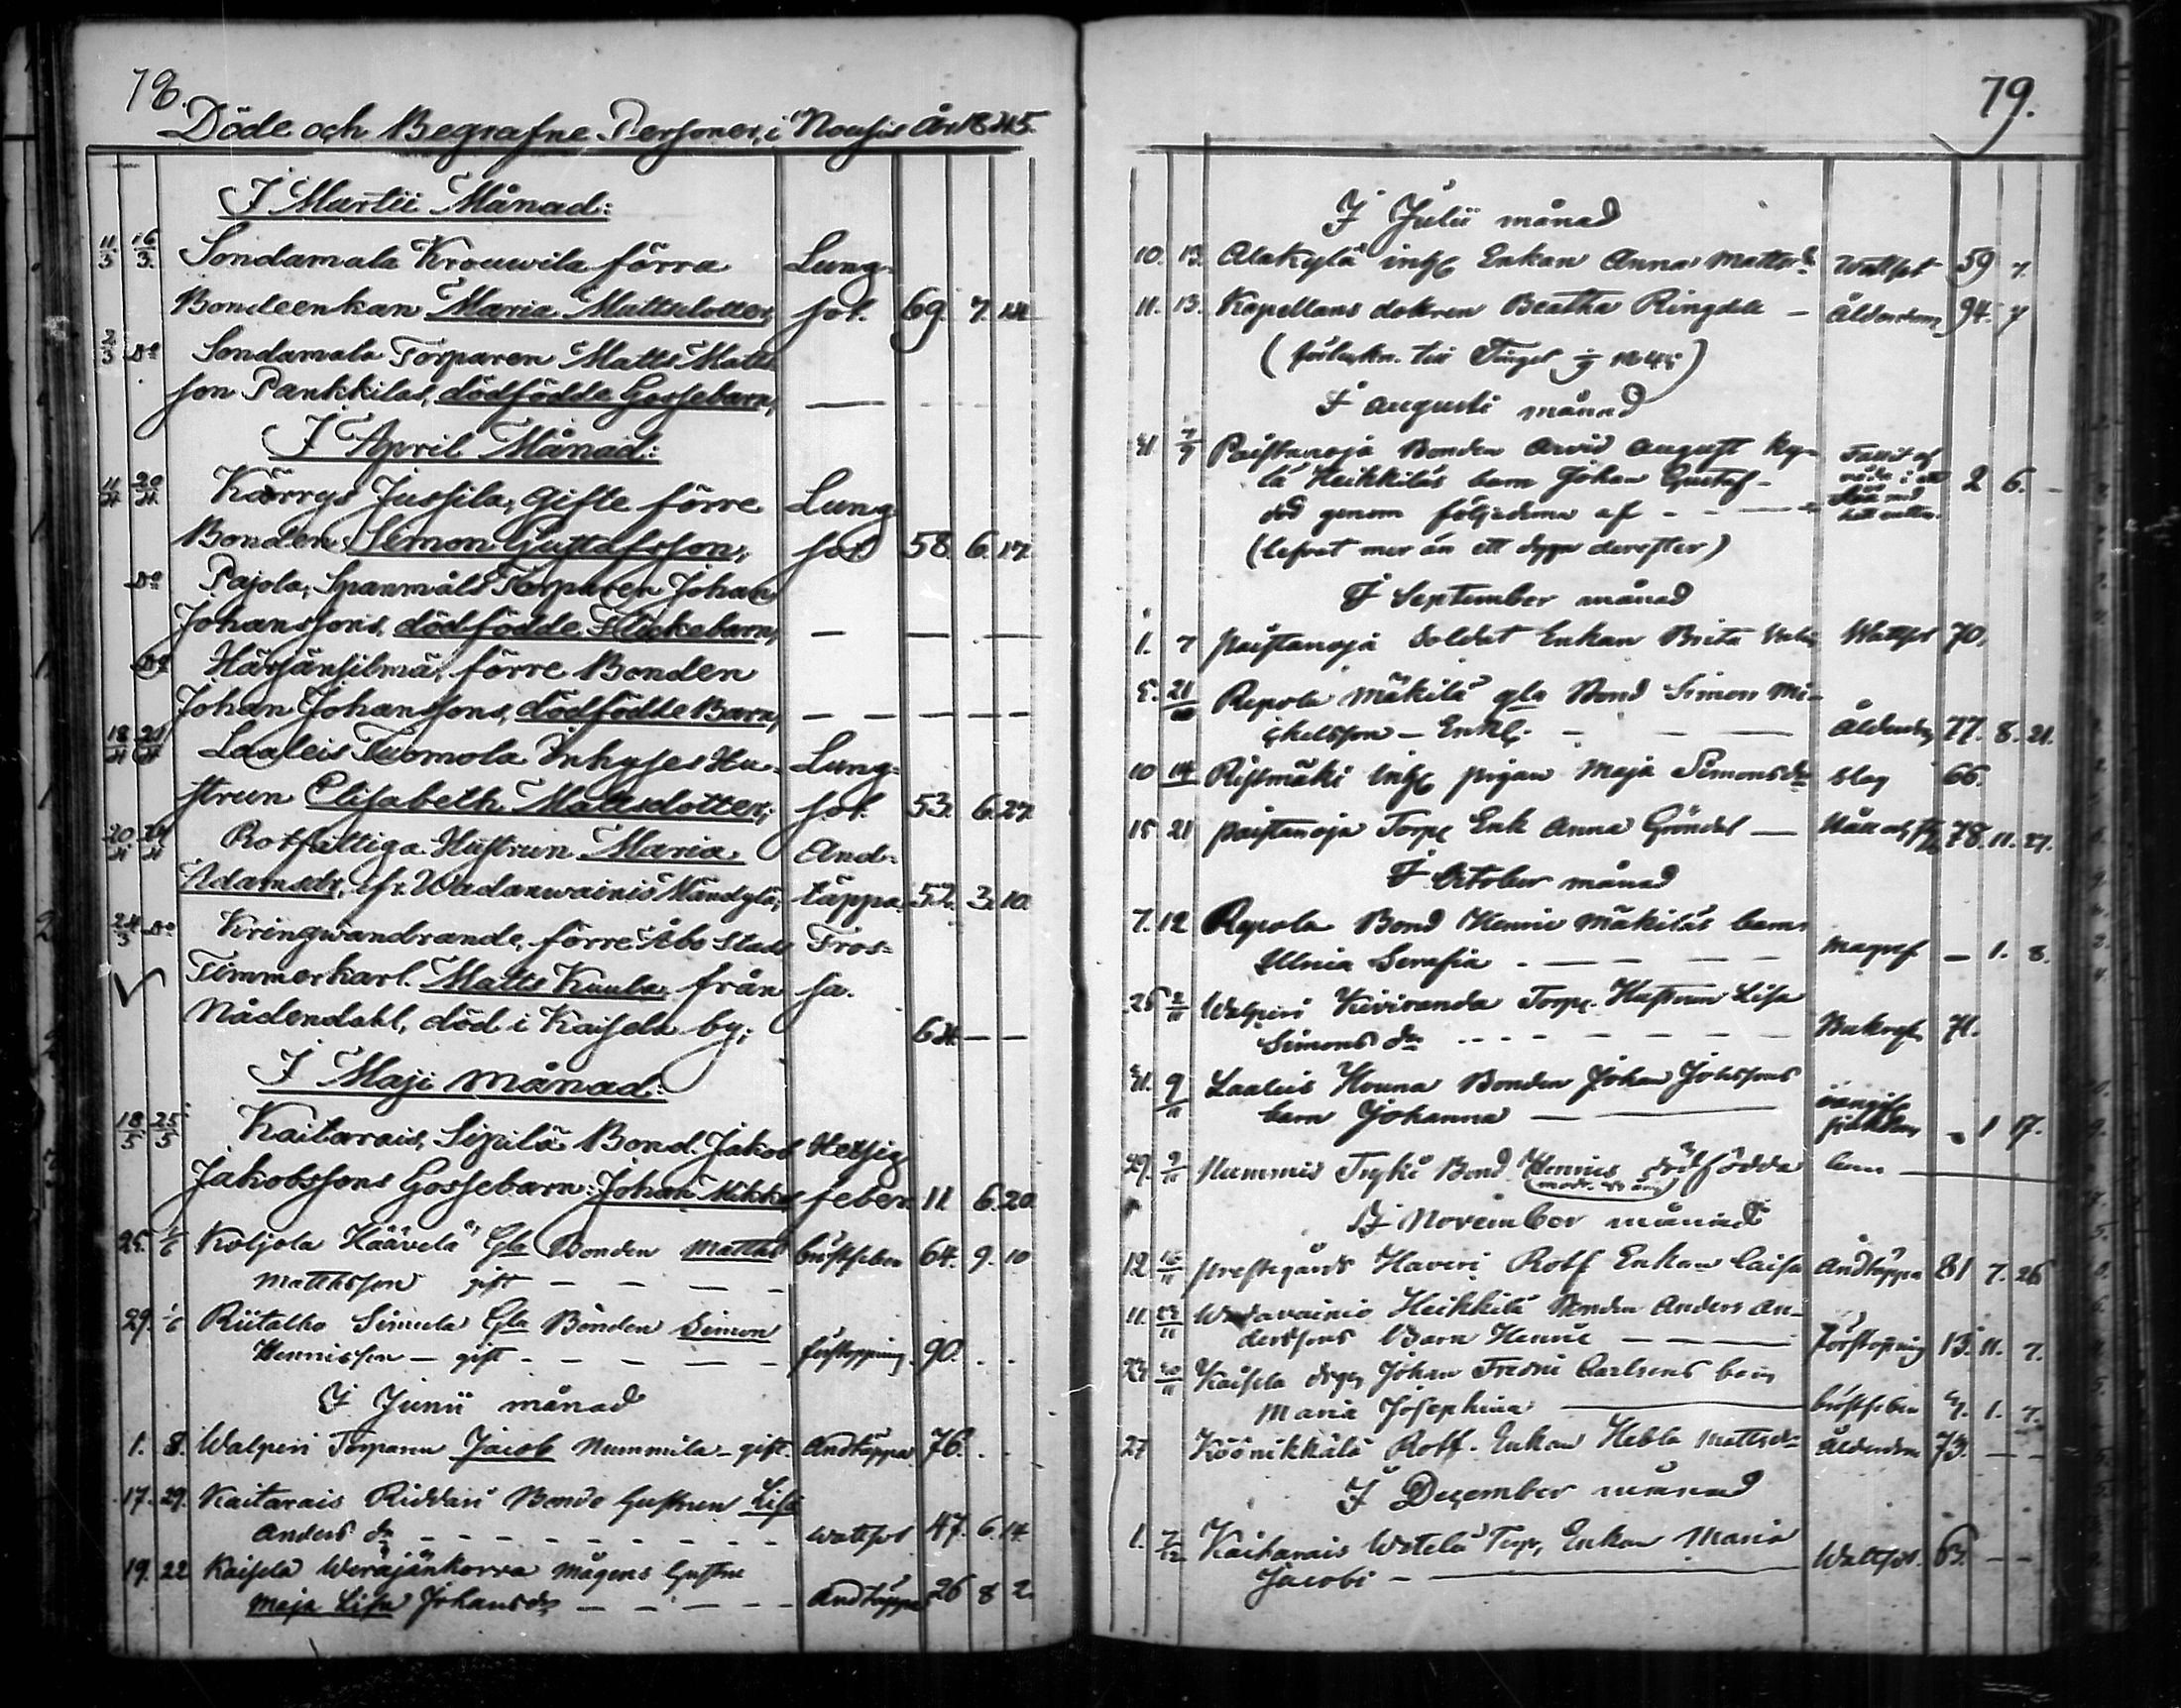 78.
Döde och Begrafne Personer, i Nousis År 1845.
I Martii Månad:
11/3 16/3. Sondamala Krouwila förra Lung-
Bondeenkan Maria Mattsdotter, sot. 69. 7. 14
2/3 Do Sondamala Torparen Matts Matts
son Pankkilas, dödfödde Gossebarn, —
I April Månad:
11/4 20/4 Kärrys Jussila, Gifte förre Lung
Bonden Simon Gustafsson, sot 58. 6. 17.
Do Pajola, Spanmåls Torparen Johan
Johanssons, dödfödde Flickebarn, — — —
Do Härjänsilmä, förre Bonden
Johan Johanssons, dödfödde Barn, — — — —
18/4 24/4 Laaleis Tuomola Inhyses Hu- Lung-
strun Elisabeth Mattsdotter; sot. 53. 6. 27.
20/4 24/4 Rotfattiga Hustrun Maria And-
Adamsdr, ifr. Wadanwainio täppa. 52. 3. 10.
24/3 Do Kringwandrande, förre Åbo Stads Fros-
Timmerkarl. Matts Kuula, från sa.
Nådendahl, död i Kaisela by; 64. — —
I Maji månad:
18/5 25/5 Kaitarais, Sipilä Bond. Jakob Hetsig
Jakobssons Gossebarn: Johan Mikkel feber. 11 6. 20.
25. 1/6 Koljola Häävelä Gla Bonden Matths bröstfeber 64. 9. 10
Matthsson gift — — —
29. 1/6 Riitalho Simula Gla Bonden Simon
Hennisson — gift — — — förstoppning 90. . .
I Junii månad
1. 8. Walperi Torparen Jacob Nummila - gift. Andtäppa 76. . .
17. 29. Kaitarais Riddari Bonde hustrun Lisa
Anders dr — — — wattsot 47. 6. 14
19. 22 Kaisela Weräjänkorva mågens hustru
Maja Lisa Johansdr — — — Andtäppa 26 8 2.
79.
I Julii månad
10. 13. Alakylä inhs Enkan Anna Mattsdr Wattsot 59 7.
11. 13. Kapellans dokren Beatha Ringdell — Ålderdom 94. 7
I Augusti månad
31 7/9 Paistanoja Bonden Arvid August Ky- Fallit af
lä Heikkiläs barn Johan Gustaf - 2 6. -
död genom följderna af - - —
(lefvat mer än ett dygn derefter)
I September månad
1. 7 Paistanoja Soldat Enkan Brita Wattsot 70.
5. 21 Repola Mäkilä gla Bond Simon Mi-
chelsson — Enkl. — — Ålderdom 77. 8. 21.
10 14 Ristmäki inhs pigan Maja Simonsdr slag 66.
15 21 Paistanoja Torps Enk Anna Gröndal — 78. 11. 27.
I October månad
7. 12 Repola Bond Hennis Mäkiläs barn
Ulrica Serafia . — — — Magref — 1. 8.
25 2/11 Walperi Kiviranda Torps. Hustrun Lisa
Simons dr - - - - — 71.
31. 9/11 Laaleis Houna Bonden Johan Johssons
barn Johanna — — 1 17.
29. 9/11 Nummis Tryki Bond Hennis dödfödda barn —
I November månad
12 16/11 Prestegårds Haveri Rotf Enkan Caisa Andtäppa 81 7. 26
11. 23/11 Wadavainio Heikkilä Bonden Anders An-
derssons Barn Hennie — — Förstopning 13. 11. 7.
23 30/11 Kaisela drgs Johan Fredric Carlsons barn
Maria Josephina — bröstfeber 4. 1. 7.
27 Köönikkälä Rotf. Enkan Hebla Mattsdr Ålderdom 73. — -
I December månad
1. 7/12 Kaitarais Wetelä Torp, Enkan Maria
Jacobi — — Wattsot. 63. — —